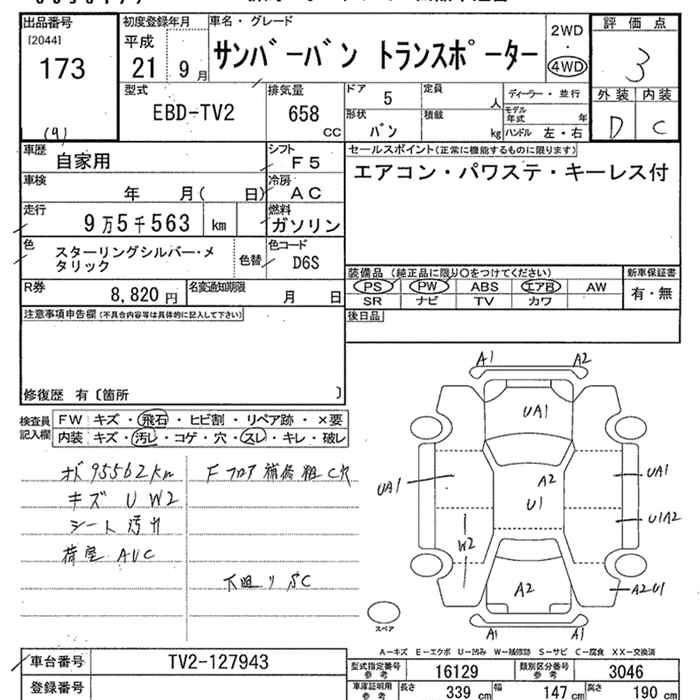 出品番号 初度登録年月 車名・グレード 2WD 評価点
[2044] 平成 サンバーバン トランスポーター ・ 3
173 21年 9月 4WD
(9)
型式 排気量 ドア 5 定員 人 ディーラー・並行 外装 内装
EBD-TV2 658 cc 形状 バン 積載 kg モデル年式 年 D C
ハンドル 左・右
車歴 自家用 シフト F5 セールスポイント(正常に機能するものに限ります)
車検 年 月( 日) 冷房 AC エアコン・パワステ・キーレス付
走行 9万5千563 km 燃料 ガソリン
色 スターリングシルバー・メタリック 色替 色コード D6S
装備品 (純正品に限り○をつけてください) 新車保証書
R券 8,820円 名変通知期限 月 日 PS PW ABS エアB AW 有・無
SR ナビ TV カワ
注意事項申告欄(不具合内容等は具体的に記入して下さい) 後日品
修復歴 有〔箇所 〕
検査員記入欄 FW キズ・飛石・ヒビ割・リペア跡・×要
内装 キズ・汚レ・コゲ・穴・スレ・キレ・破レ
オド 95562km Fフロア補修粗C穴
キズ U W2
シート汚れ
荷室 AUC
下廻りSC
A1 A2
UA1
UA1 A2 UA1
U1 U1A2
W2
A2 A2U1
A1 A1
スペア
A-キズ E-エクボ U-凹み W-補修跡 S-サビ C-腐食 XX-交換済
車台番号 TV2-127943 型式指定番号 参考 16129 類別区分番号 参考 3046
登録番号 車庫証明用 参考 長さ 339 cm 幅 147 cm 高さ 190 cm